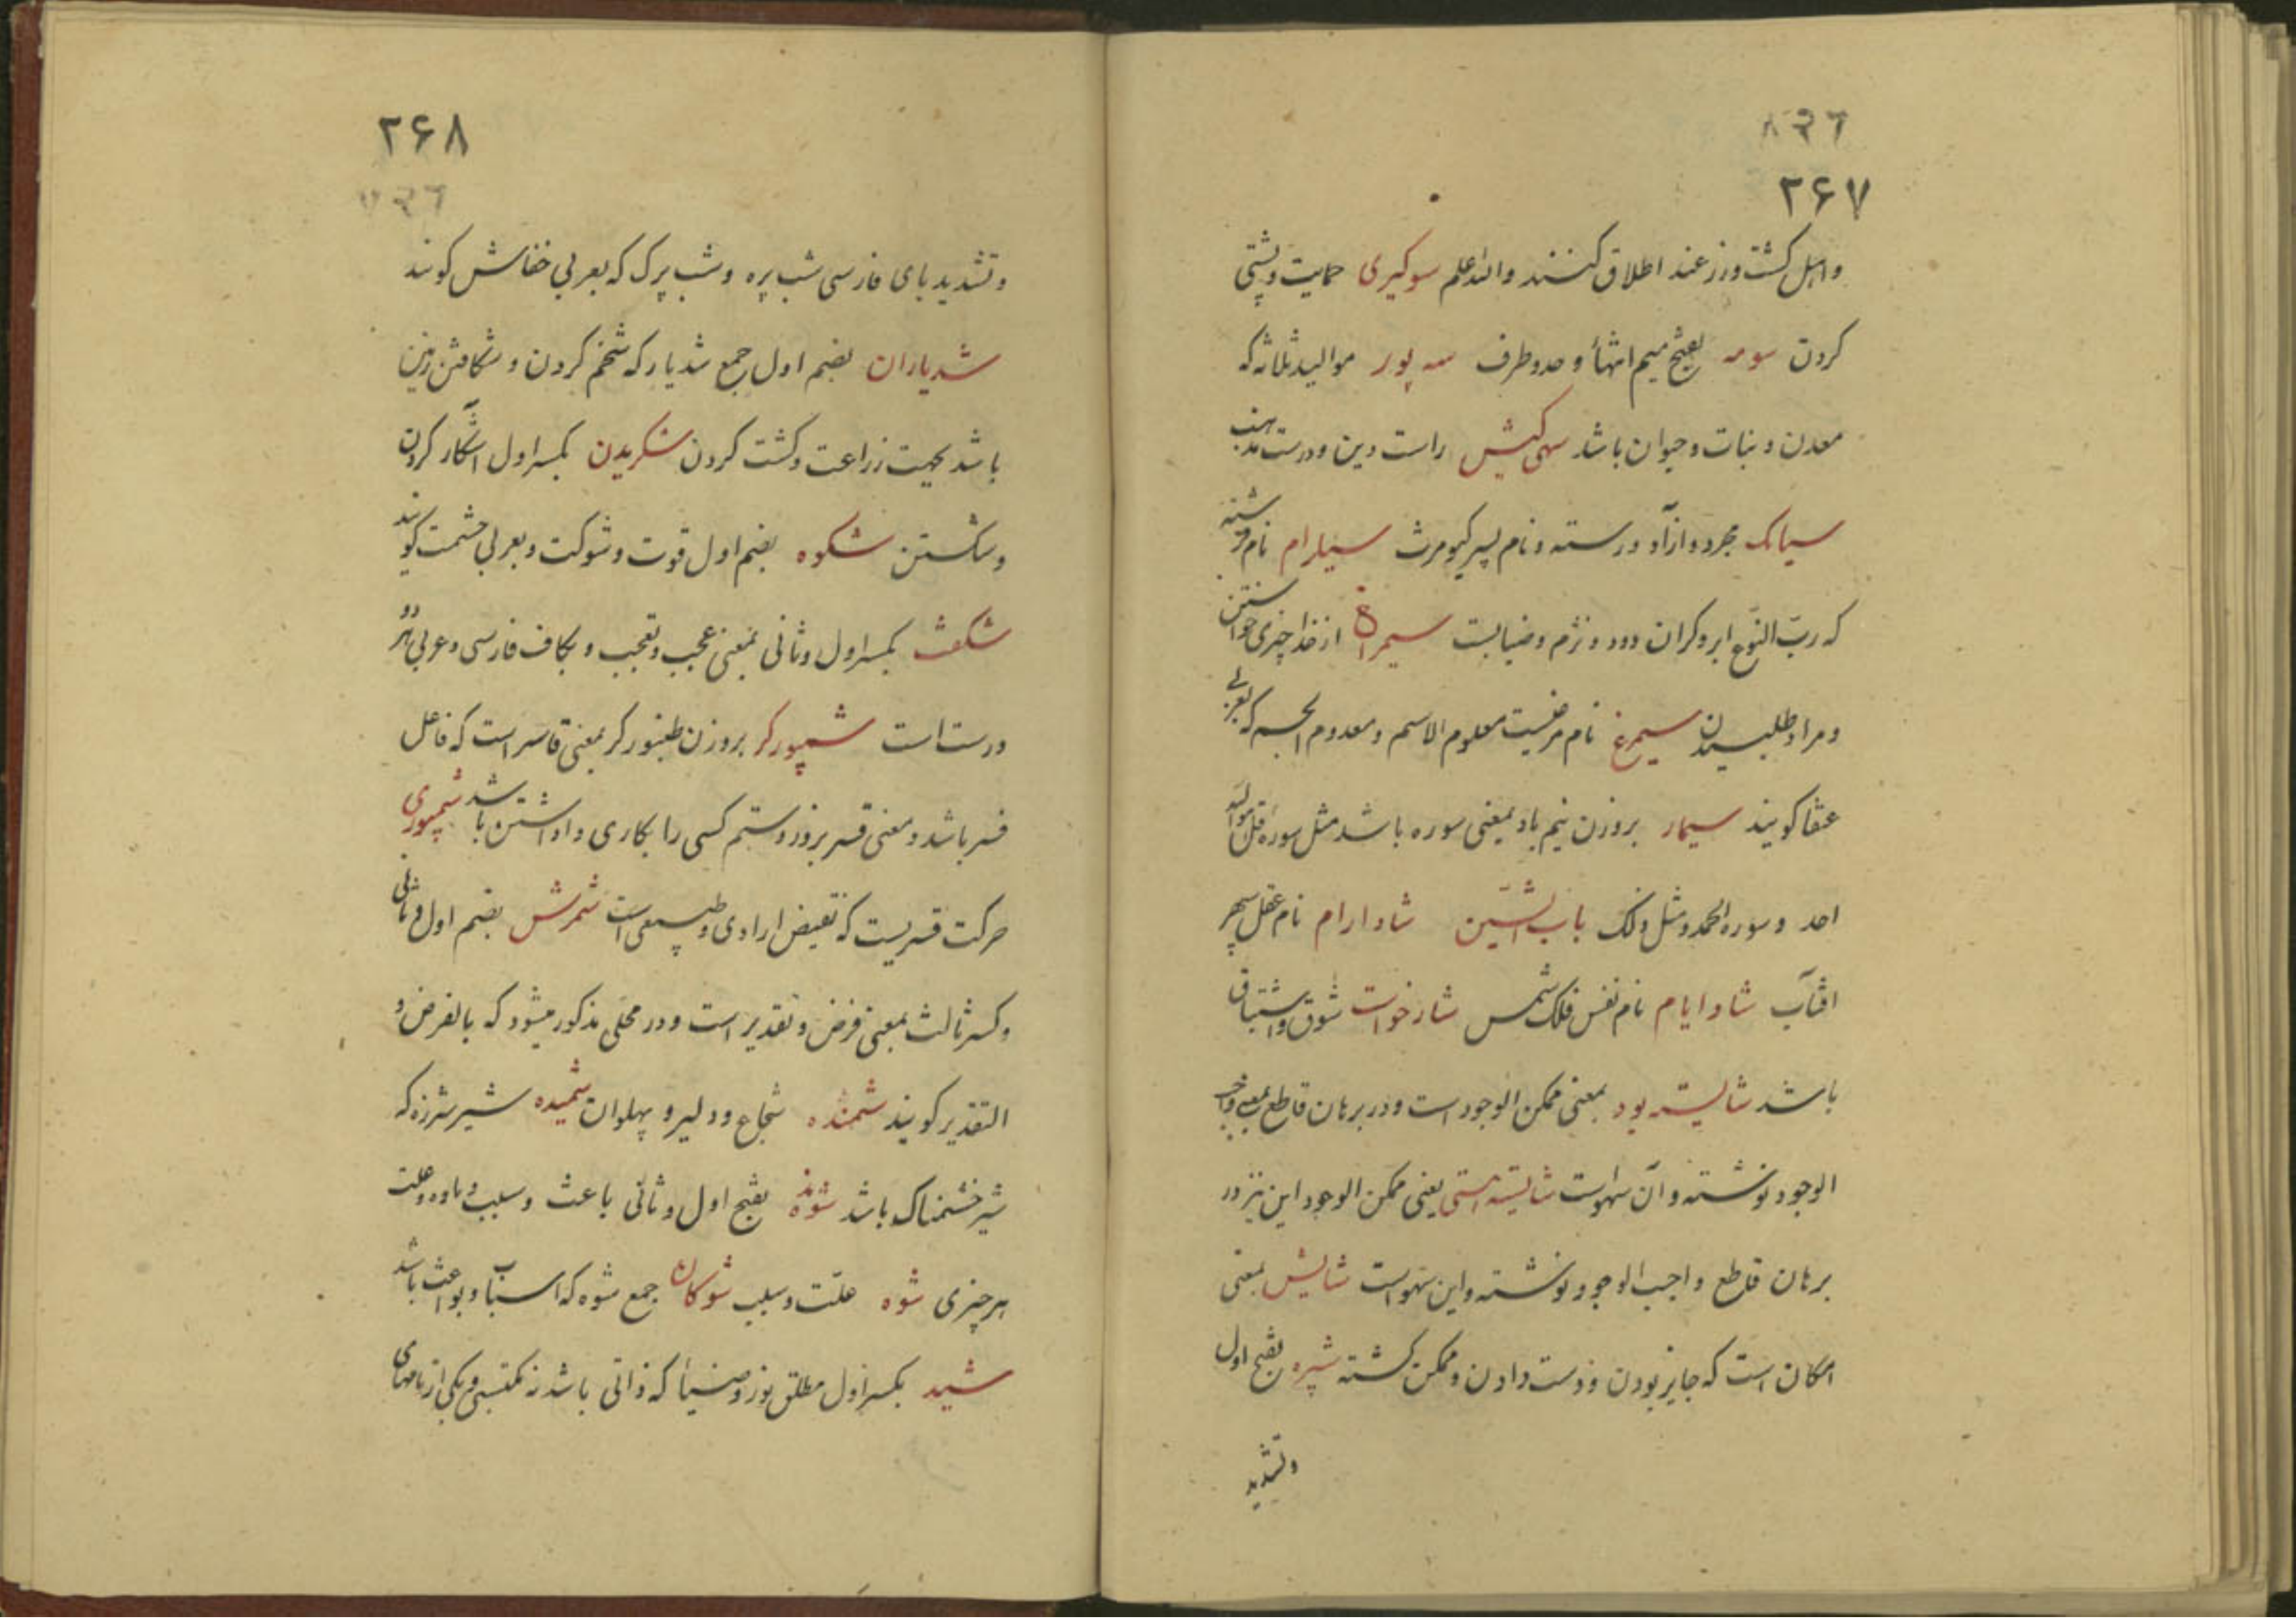 ۲۶۷
واهل کشت ورز عند اطلاق کنند والله اعلم سوکیری حمایت وپشتی
کردن سومه بفتح میم انتهاء وحد وطرف سه پور موالید ثلاثه که
معدن ونبات وحیوان باشد سهی کیش راست دین ودرست مذهب
سیامک مجرد وازاد ورسته ونام پسر کیومرث سیلرام نام فرشته
که رب النوع ابر وکران دود ونژم وضبابست از خدا چیزی خواستن
ومراد طلبیدن سیمرغ نام مرغیست معلوم الاسم ومعدوم الجسم که بعربی
عنقا کویند سیمار بروزن نیم باد بمعنی سوره باشد مثل سوره قل هو الله
احد وسوره الحمد ومثل ذلک باب الشین شاد ارام نام عقل سپهر
افتاب شاد ایام نام نفس فلک شمس شارخواست شوق واشتیاق
باشد شایسته بود بمعنی ممکن الوجود است ودر برهان قاطع بمعنی واجب
الوجود نوشته وآن سهواست شایسته هستی یعنی ممکن الوجود این نیز در
برهان قاطع واجب الوجود نوشته واین سهواست شایش بمعنی
امکان است که جایز بودن ودست دادن وممکن کشته شپره بفتح اول
وتشدید
۲۶۸
وتشدید بای فارسی شب پره وشب پرک که بعربی خفاش کویند
شدیاران بضم اول جمع شدیار که شخم کردن وشکافتن زمین
باشد بجهت زراعت وکشت کردن شکریدن بکسر اول آشکار کردن
وشکستن شکوه بضم اول قوت وشوکت وبعربی حشمت کویند
شکفت بکسر اول وثانی بمعنی عجب وتعجب وبکاف فارسی وعربی هر دو
درست است شمپورکر بروزن طنبورکر بمعنی قاسر است که فاعل
قسر باشد ومعنی قسر بزور وستم کسی را بکاری واداشتن باشد شمپوری
حرکت قسریست که نقیض ارادی وطبیعی است شمرش بضم اول وثانی
وکسر ثالث بمعنی فرض وتقدیر است ودر محلی مذکور میشود که بالفرض و
التقدیر کویند شمنده شجاع ودلیر وپهلوان شمیده شیر شرزه که
شیر خشمناک باشد شونده بفتح اول وثانی باعث وسبب وماده وعلت
هر چیزی شوه علت وسبب شوکان جمع شوه که اسباب وبواعث باشد
شید بکسر اول مطلق نور وضیا که ذاتی باشد نه مکتسبی ویکی از نامهای